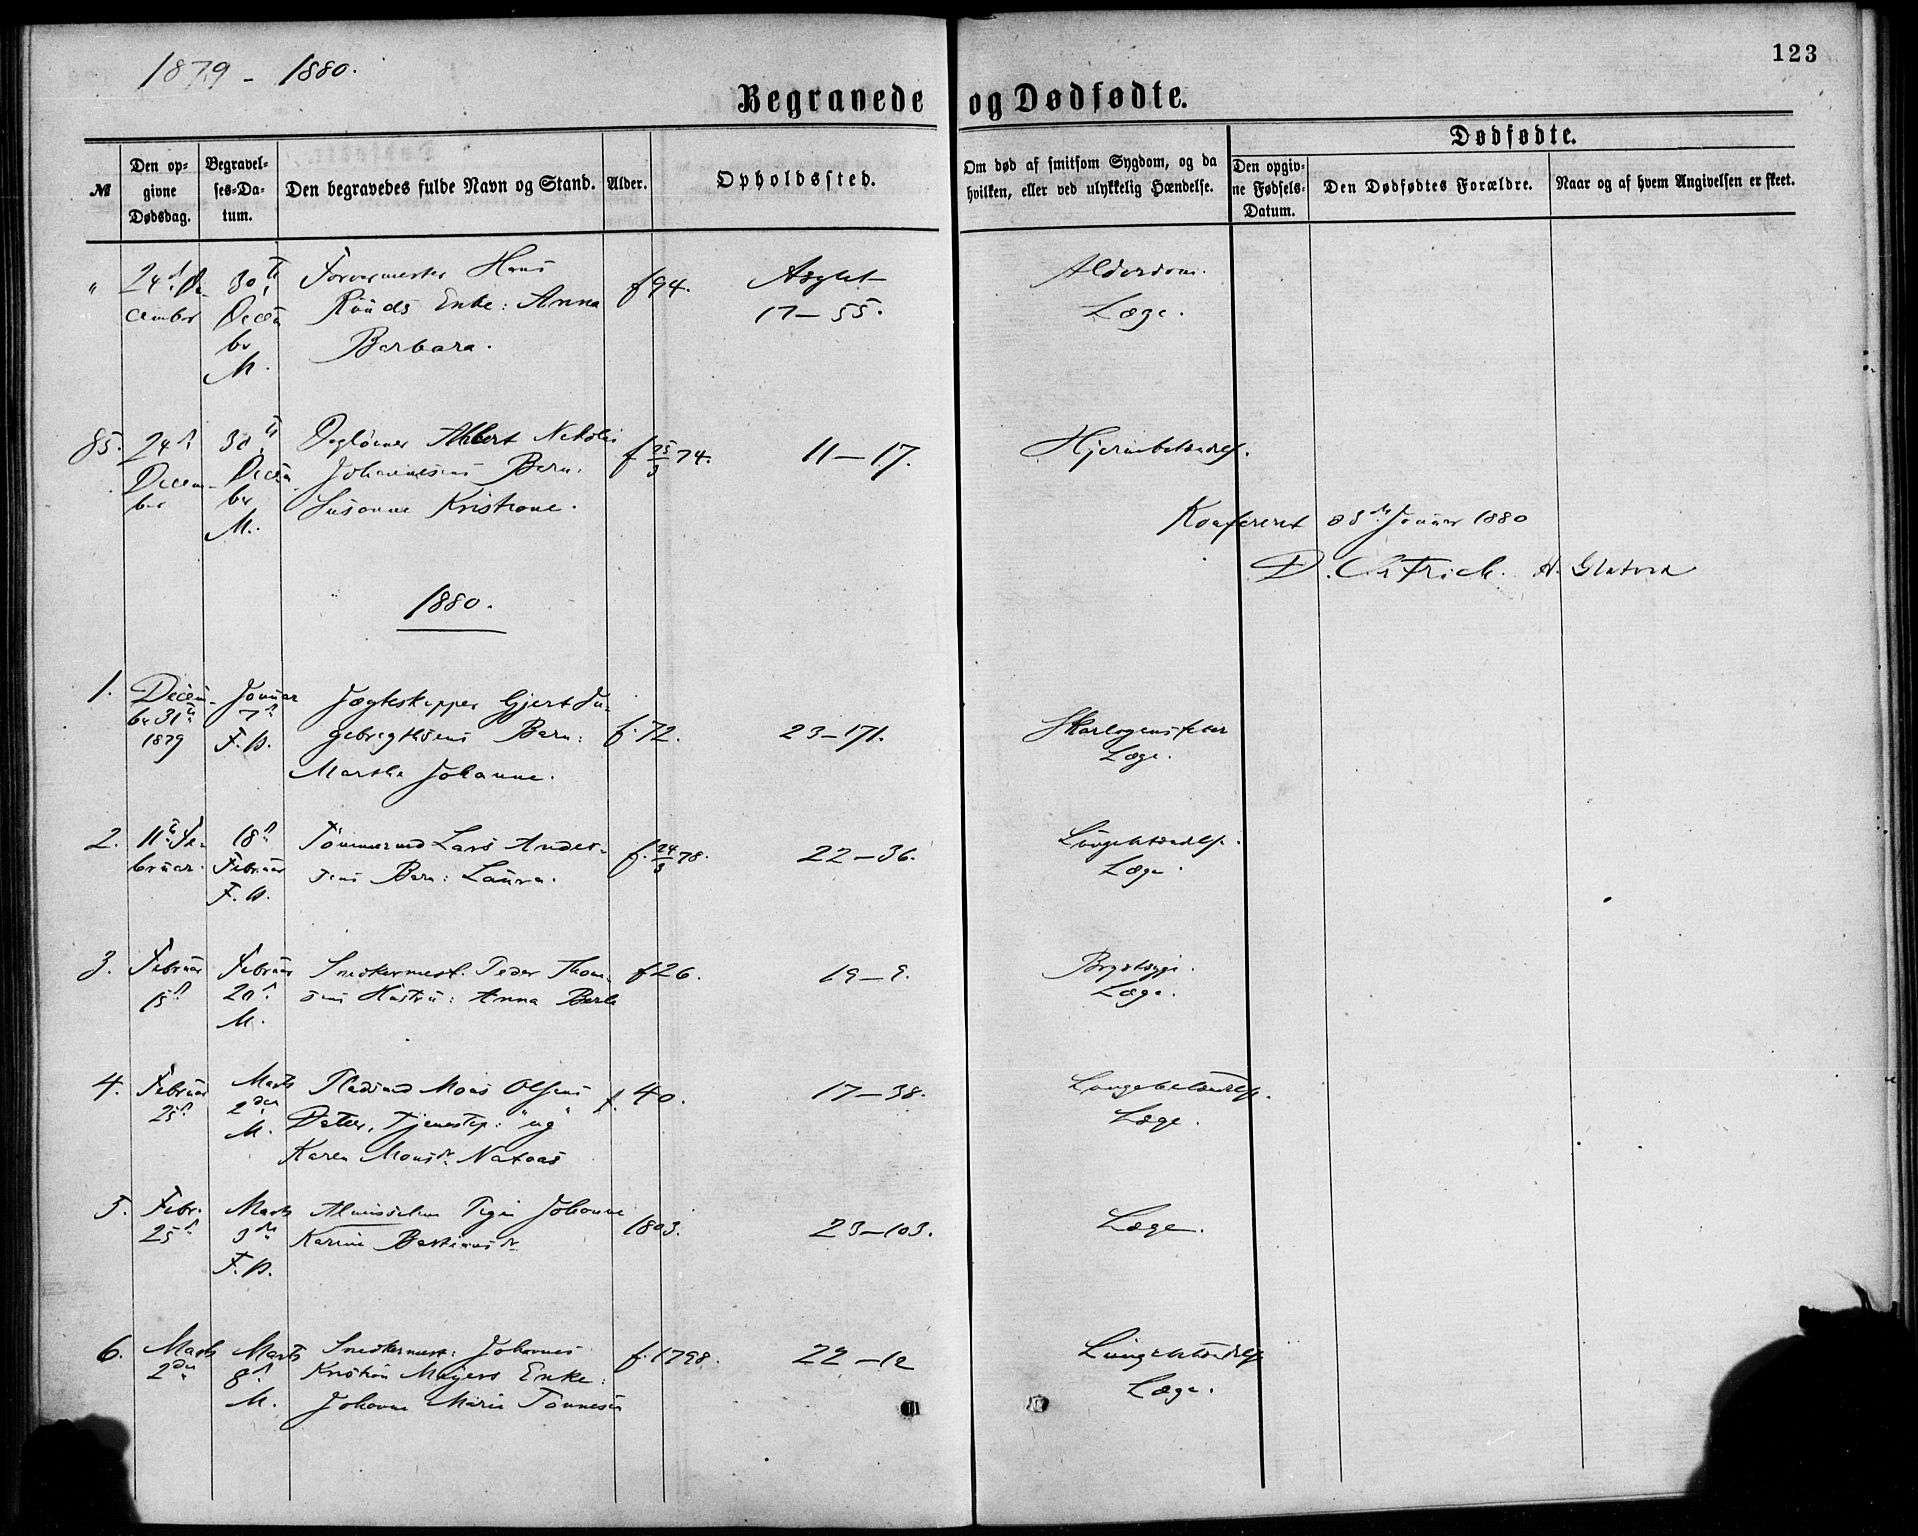 1879 - 1880.
123
Begravede og Dødfødte.
Dødfødte.
№
Den opgivne Dødsdag.
Begravelses-Datum.
Den begravedes fulde Navn og Stand.
Alder.
Opholdssted.
Om død af smitsom Sygdom, og da hvilken, eller ved ulykkelig Hændelse.
Den opgivne Fødsels-Datum.
Den Dødfødtes Forældre.
Naar og af hvem Angivelsen er skeet.
" 24de De- 30te Farvermester Hans f 94. Asylet Alderdom.
cember Decem Enke: Anna 17-55. Læge.
ber Barbara.
M.
85. 24de 30te Albert f 25/3 74. 11-17.
Decem- Decem Johannesens Barn:
ber ber Susanne Kristiane.
M.
Konfereret 8de Januar 1880
D. Chr Frich.
1880.
1. Decem- Januar Jægteskipper Gjert In- f. 72. 23-171. Skarlagensfeber
br 31te 7de gebrigtsens Barn: Læge.
1879 F. B. Martha Johanne.
2. 11te Fe- 18de Tømmermd Lars Ander- f. 24/3 78. 22-36. Lungebetændelse.
bruar. Februar sens Barn: Laura. Læge.
F. B.
3. Februar Februar Snedkermest. Peder Thom- f 26. 19-9. Brystsyge.
15de 20de sens Hustru: Anna Læge.
M.
4. Februar Marts Pladsmd Mons Olsens f. 40. 17-38. Lungebetændelse.
25de 2den Datter, Tjenestep: "ug" Læge.
M. Karen Monsdr. Nataas
5. Febr. Marts Pigen Johanne 1803. 23-103. Læge.
25de 3die Karine Bastiansdr
F. B.
6. Marts Marts Snedkermest: Johannes f. 1798. 22-12 Lungebetændelse
2den 8de Kristian Meyers Enke: Læge.
M. Johanne Marie Tønnesen